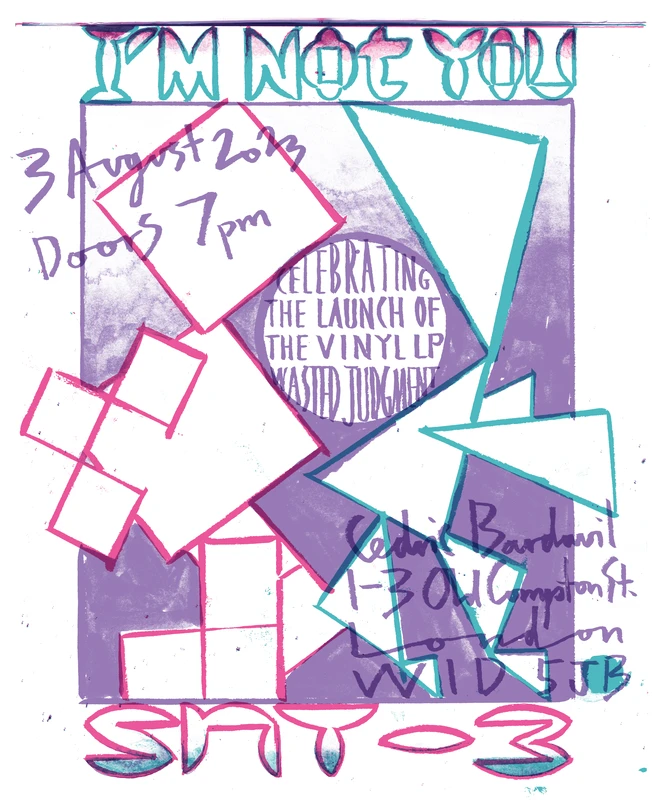 I'M NOT YOU
3 August 2023
Doors 7pm
CELEBRATING
THE LAUNCH OF
THE VINYL LP
WASTED JUDGMENT
Cedric Bardawil
1-3 Old Compton St.
London
W1D 5JB